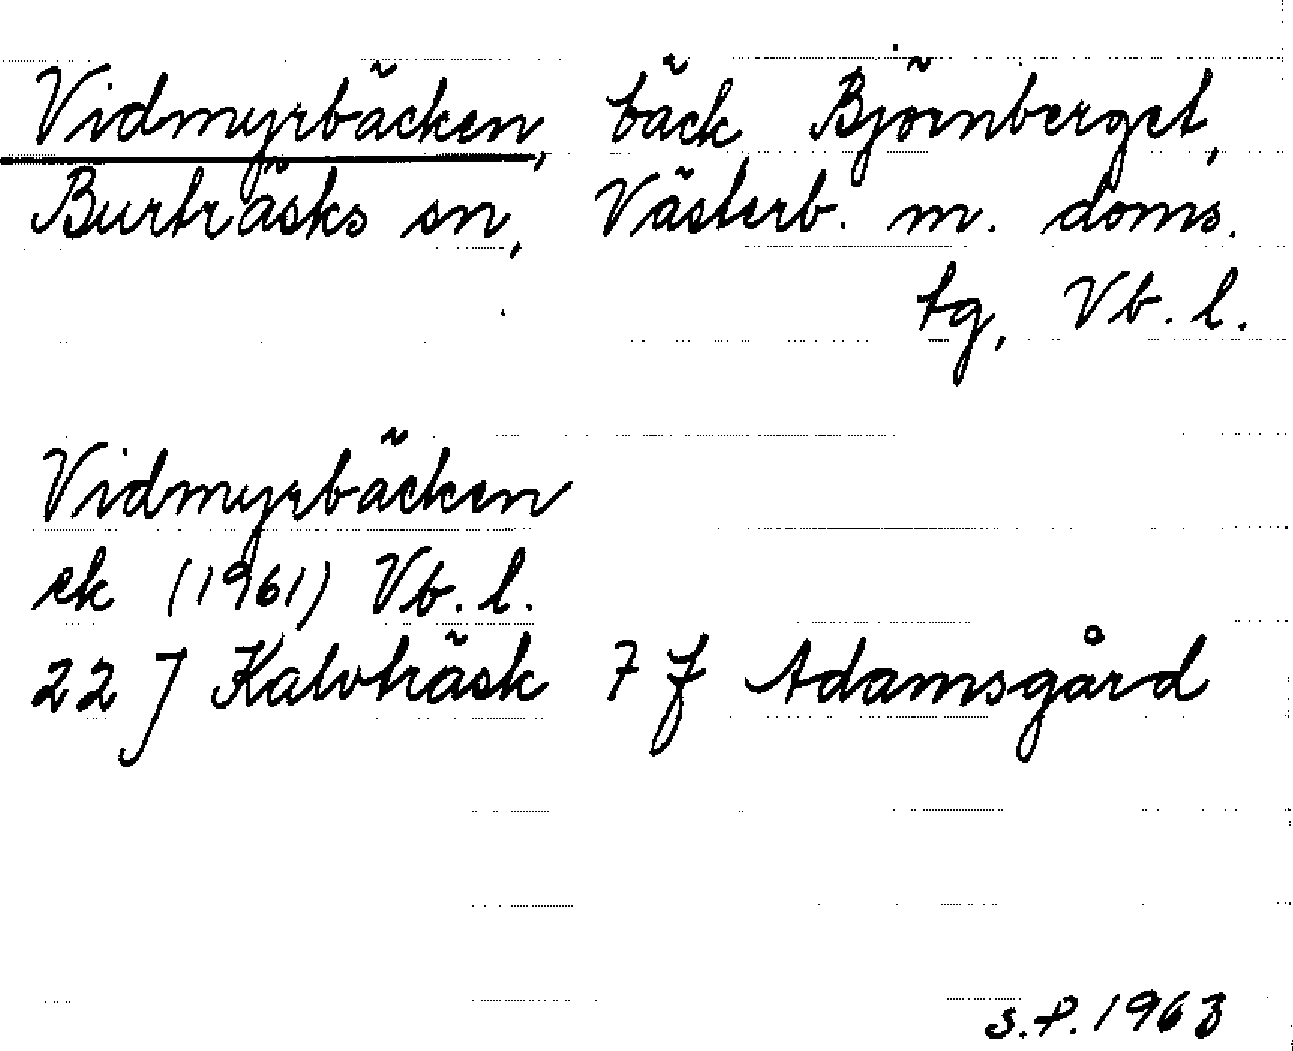 Vidmyrbäcken, bäck Björnberget,
Burträsks sn, Västerb. m. doms.
tg, Vb. l.
Vidmyrbäcken
ek (1961) Vb. l.
22 J Kalvträsk 7 f Adamsgård
S.P. 1963